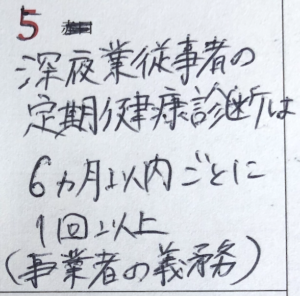 5
深夜業従事者の
定期健康診断は
6ヵ月以内ごとに
1回以上
(事業者の義務)